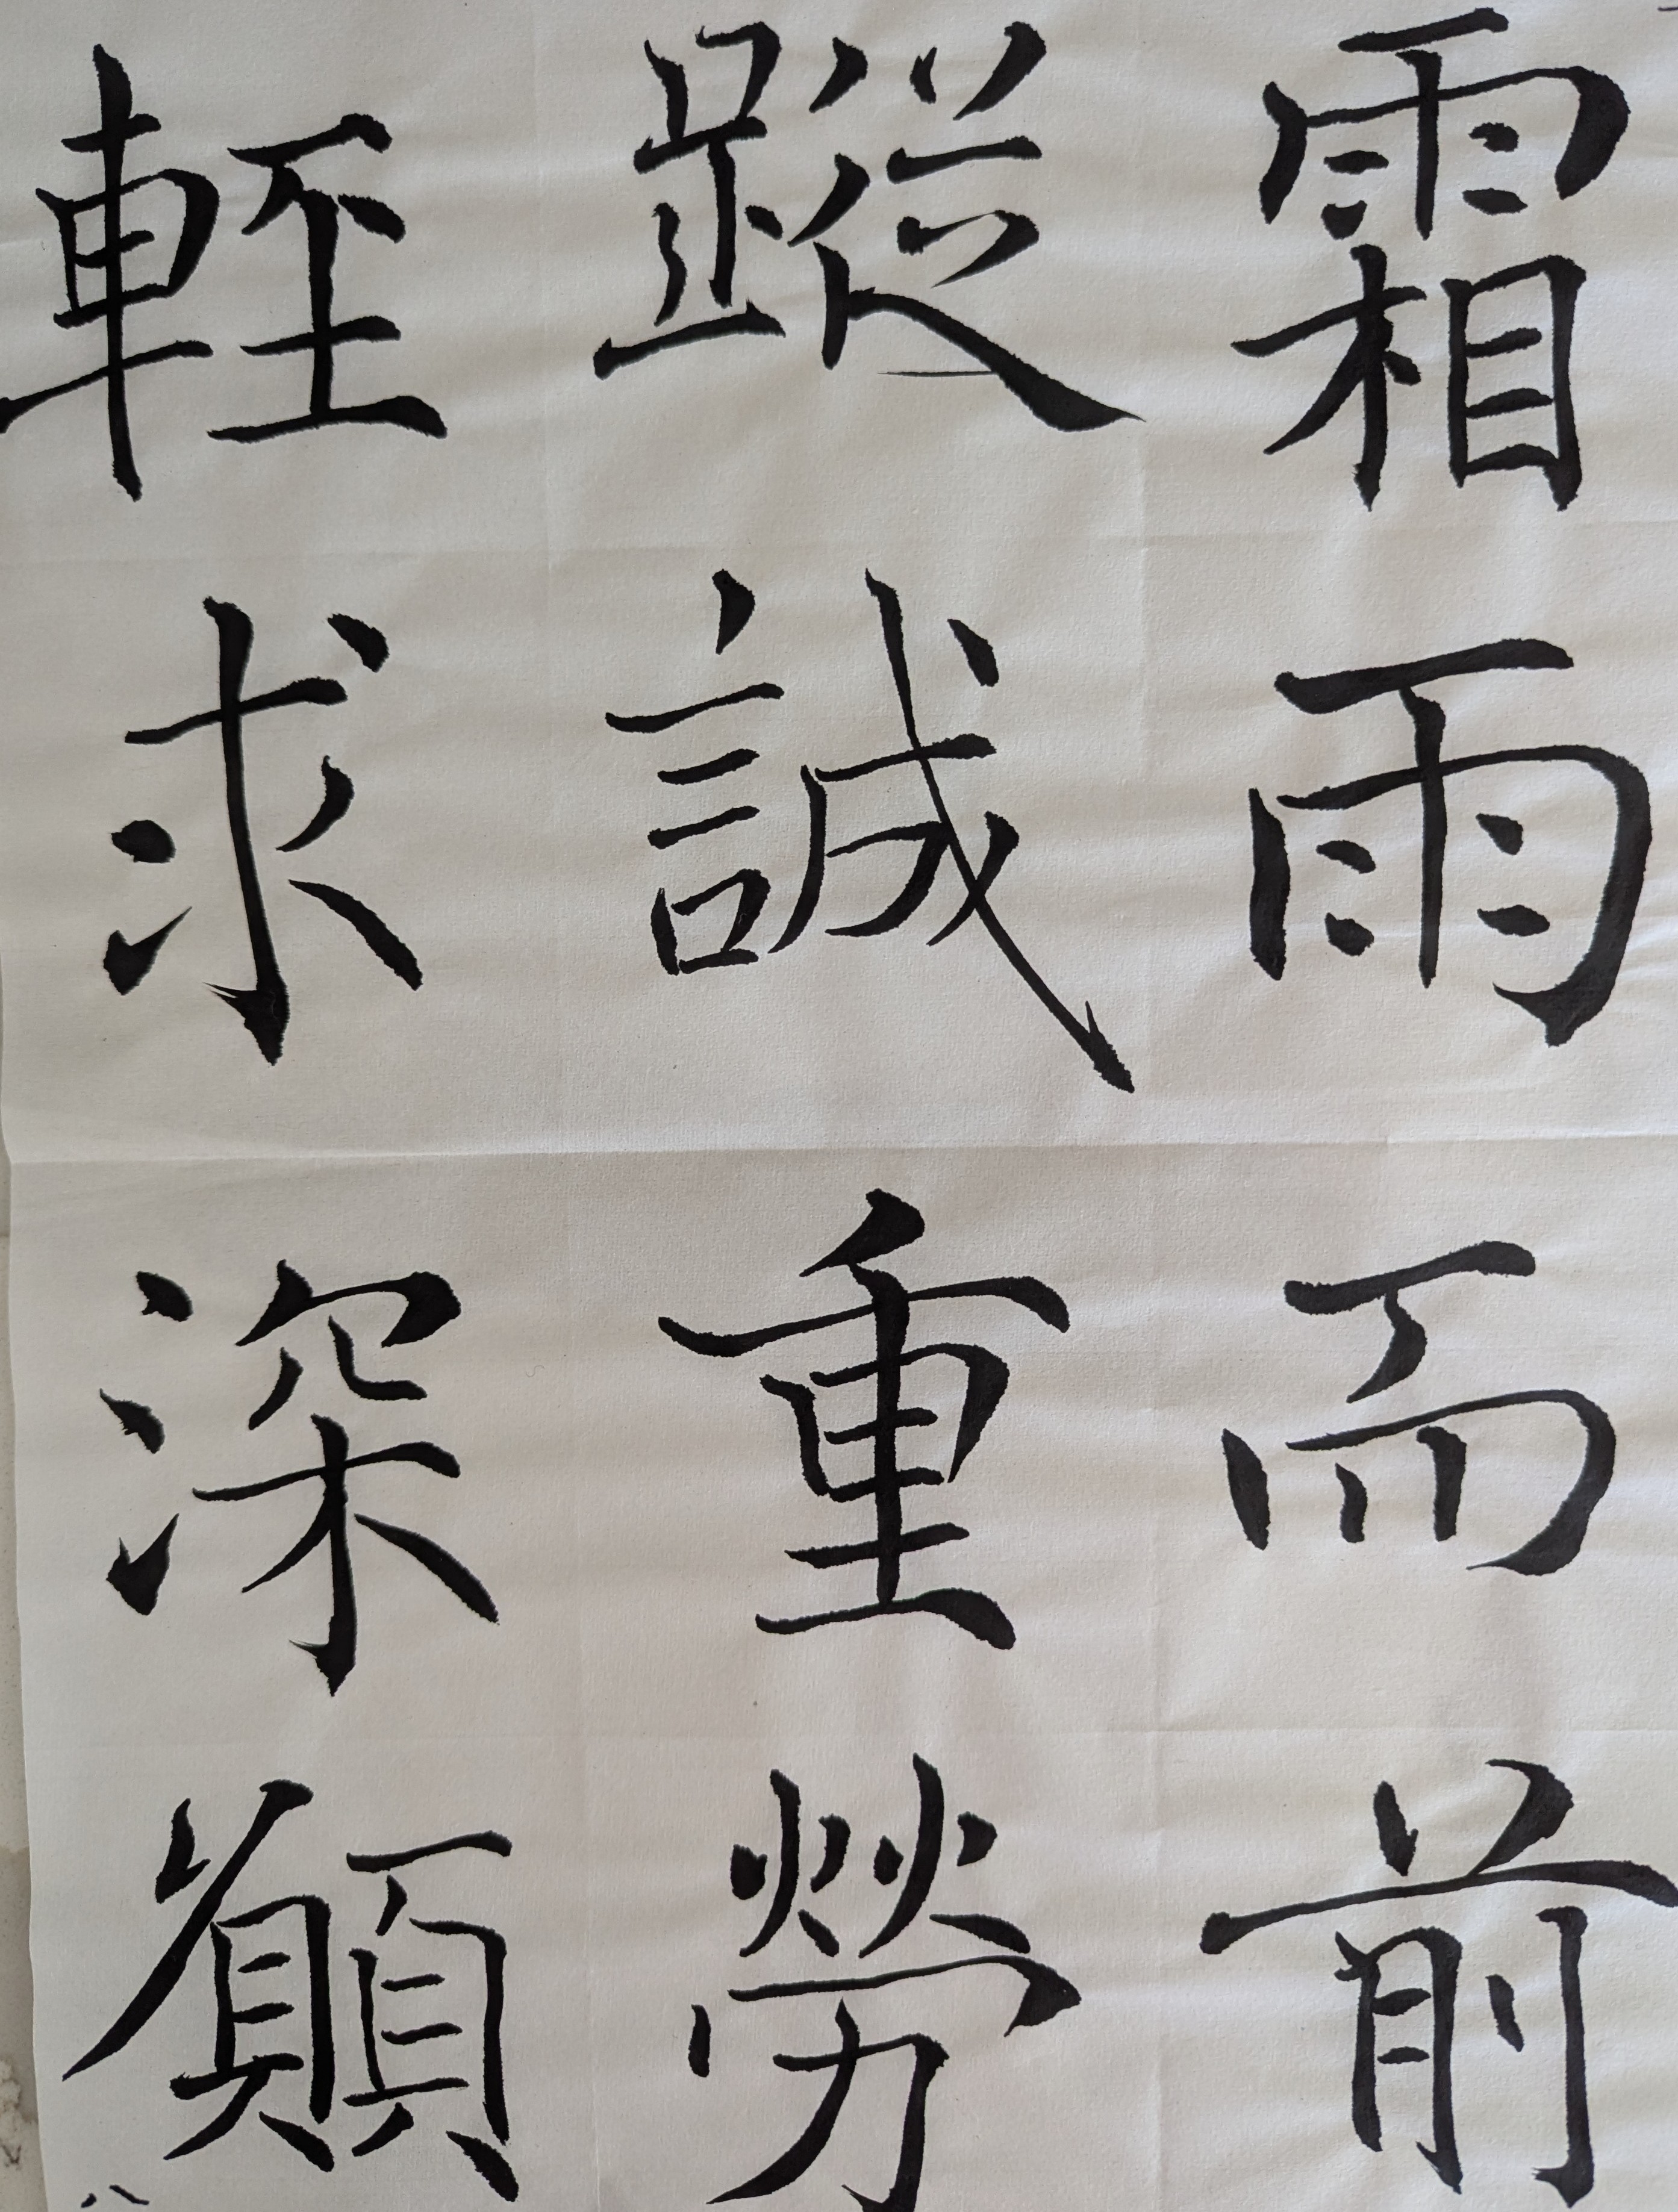 霜雨而前
蹤誠重勞
輕求深願